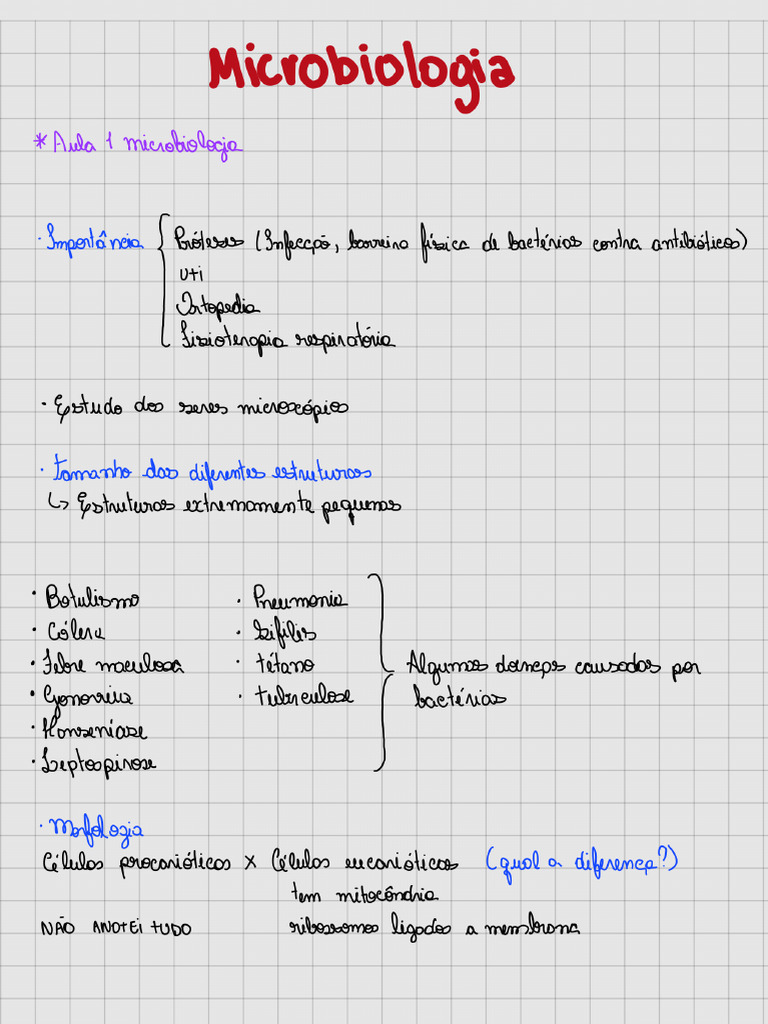 Microbiologia
* Aula 1 microbiologia
· Importância { Próteses (Infecção, barreira física de bactérias contra antibióticos)
uti
Ortopedia
Fisioterapia respiratória
· Estudo dos seres microscópios
· Tamanho das diferentes estruturas
↳ Estruturas extremamente pequenas
· Botulismo
· Cólera
· Febre maculosa
· Gonorreia
· Hanseníase
· Leptospirose
· Pneumonia
· Sífilis
· Tétano
· Tuberculose
Algumas doenças causadas por
bactérias
· Morfologia
Células procarióticas x Células eucarióticas (qual a diferença?)
tem mitocôndria
NÃO ANOTEI TUDO ribossomos ligados a membrana